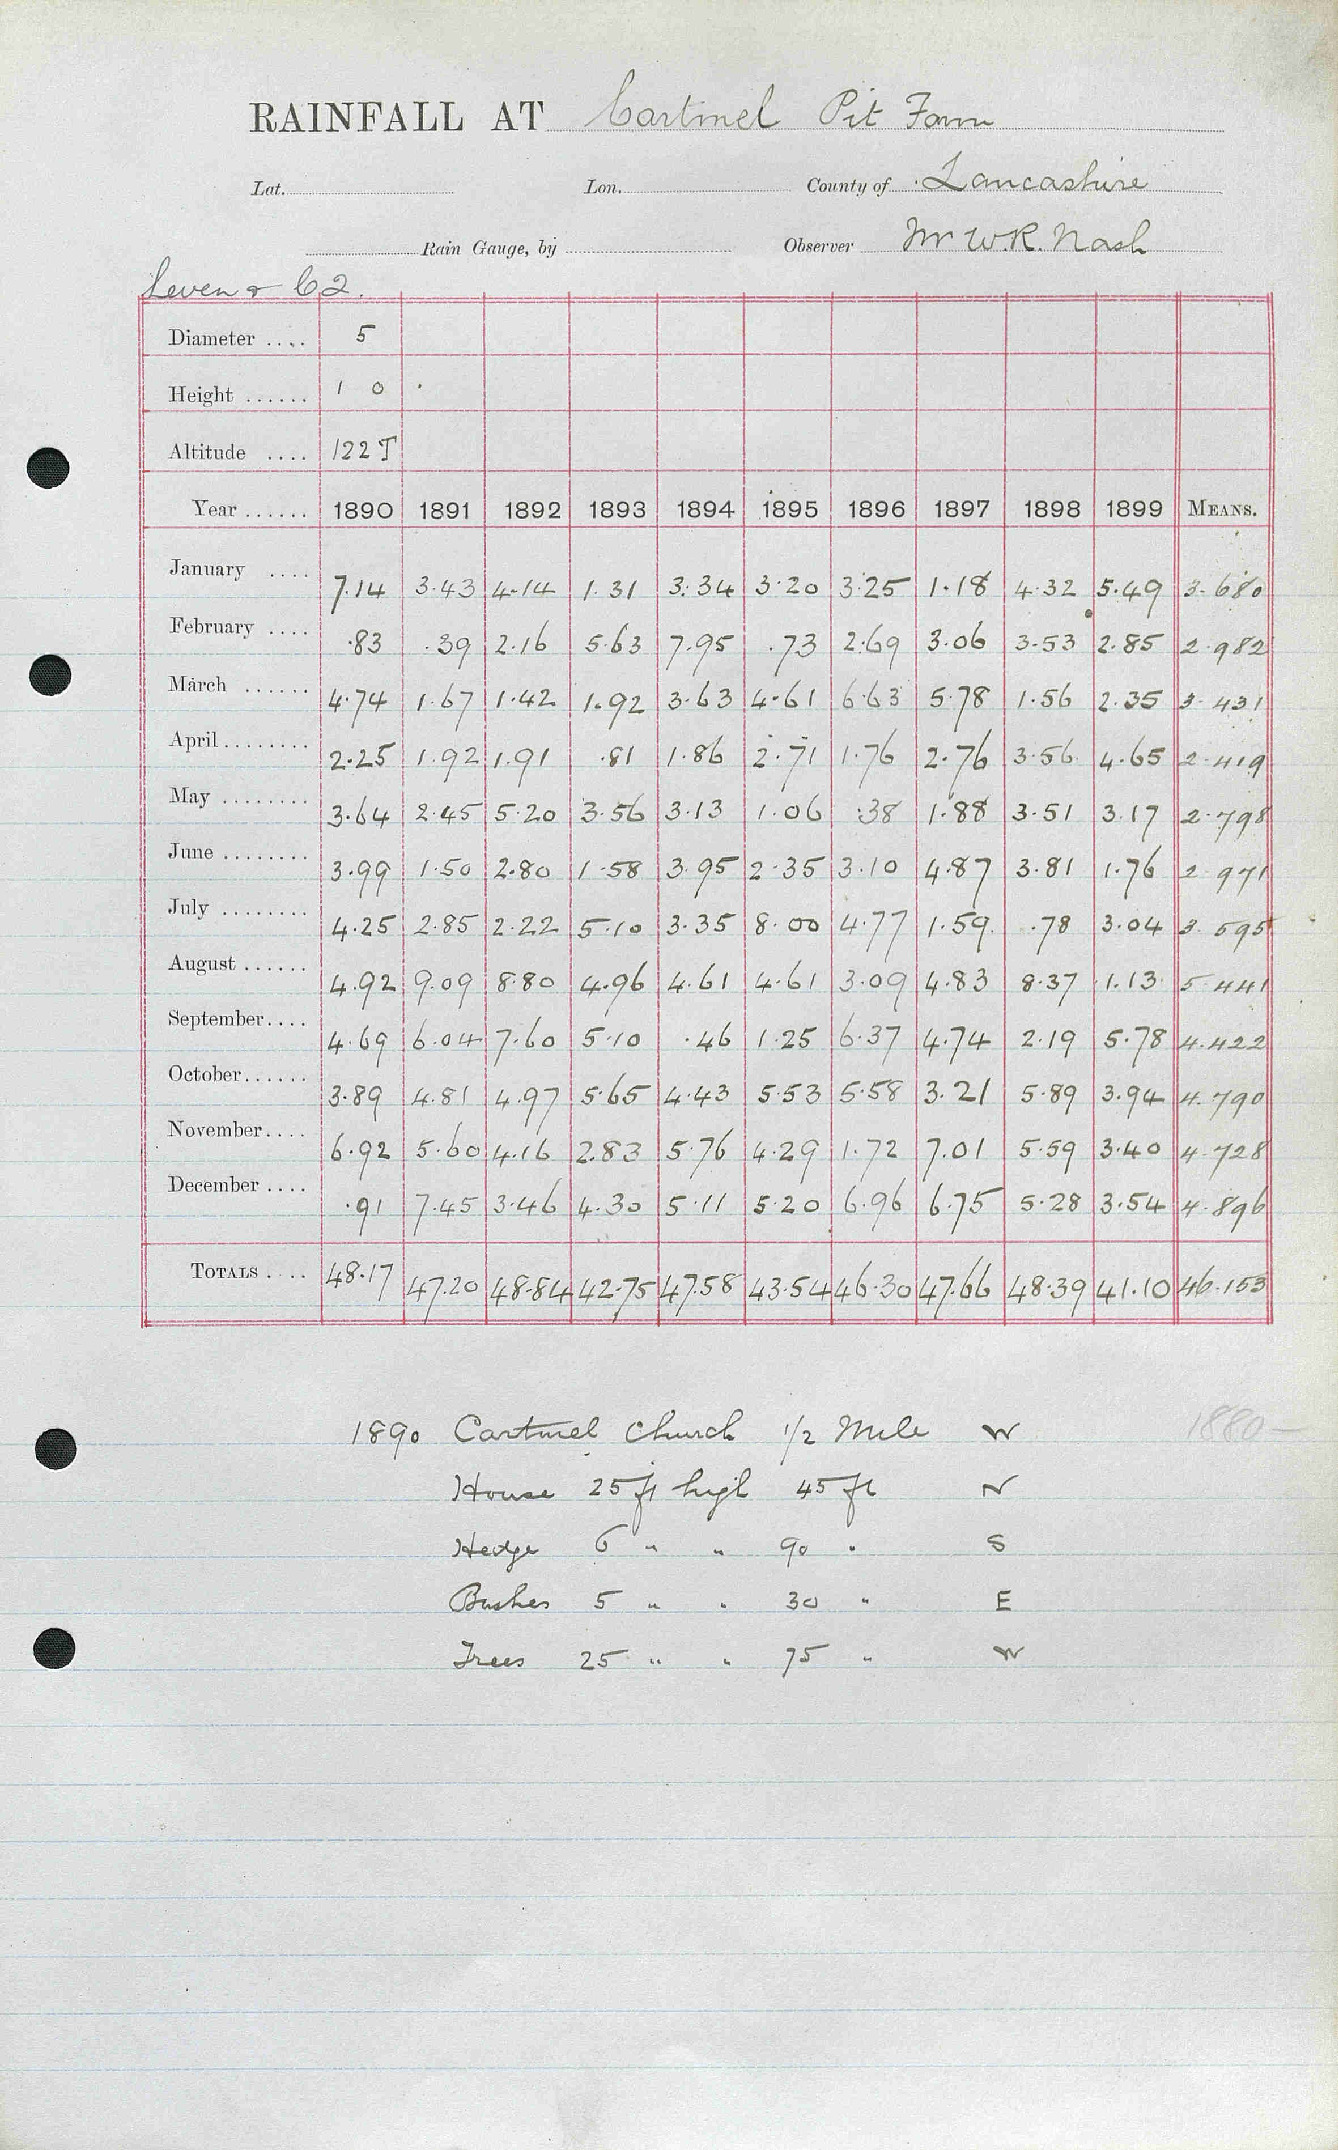 RAINFALL AT Cartmel Pit Farm
Lat. Lon. County of Lancashire
Rain Gauge, by Observer Mr W.R. Nash
Leven & C2.
Diameter .... 5
Height ...... 1 0
Altitude .... 122 T
Year ...... 1890 1891 1892 1893 1894 1895 1896 1897 1898 1899 MEANS.
January .... 7.14 3.43 4.14 1.31 3.34 3.20 3.25 1.18 4.32 5.49 3.680
February .... .83 .39 2.16 5.63 7.95 .73 2.69 3.06 3.53 2.85 2.982
March ...... 4.74 1.67 1.42 1.92 3.63 4.61 6.63 5.78 1.56 2.35 3.431
April ........ 2.25 1.92 1.91 .81 1.86 2.71 1.76 2.76 3.56 4.65 2.419
May ........ 3.64 2.45 5.20 3.56 3.13 1.06 .38 1.88 3.51 3.17 2.798
June ........ 3.99 1.50 2.80 1.58 3.95 2.35 3.10 4.87 3.81 1.76 2.971
July ........ 4.25 2.85 2.22 5.10 3.35 8.00 4.77 1.59 .78 3.04 3.595
August ...... 4.92 9.09 8.80 4.96 4.61 4.61 3.09 4.83 8.37 1.13 5.441
September.... 4.69 6.04 7.60 5.10 .46 1.25 6.37 4.74 2.19 5.78 4.422
October...... 3.89 4.81 4.97 5.65 4.43 5.53 5.58 3.21 5.89 3.94 4.790
November.... 6.92 5.60 4.16 2.83 5.76 4.29 1.72 7.01 5.59 3.40 4.728
December .... .91 7.45 3.46 4.30 5.11 5.20 6.96 6.75 5.28 3.54 4.896
TOTALS .... 48.17 47.20 48.84 42.75 47.58 43.54 46.30 47.66 48.39 41.10 46.153
1890 Cartmel Church 1/2 Mile W 1880-
House 25 ft high 45 ft N
Hedge 6 " " 90 " S
Bushes 5 " " 30 " E
Trees 25 " " 75 " W